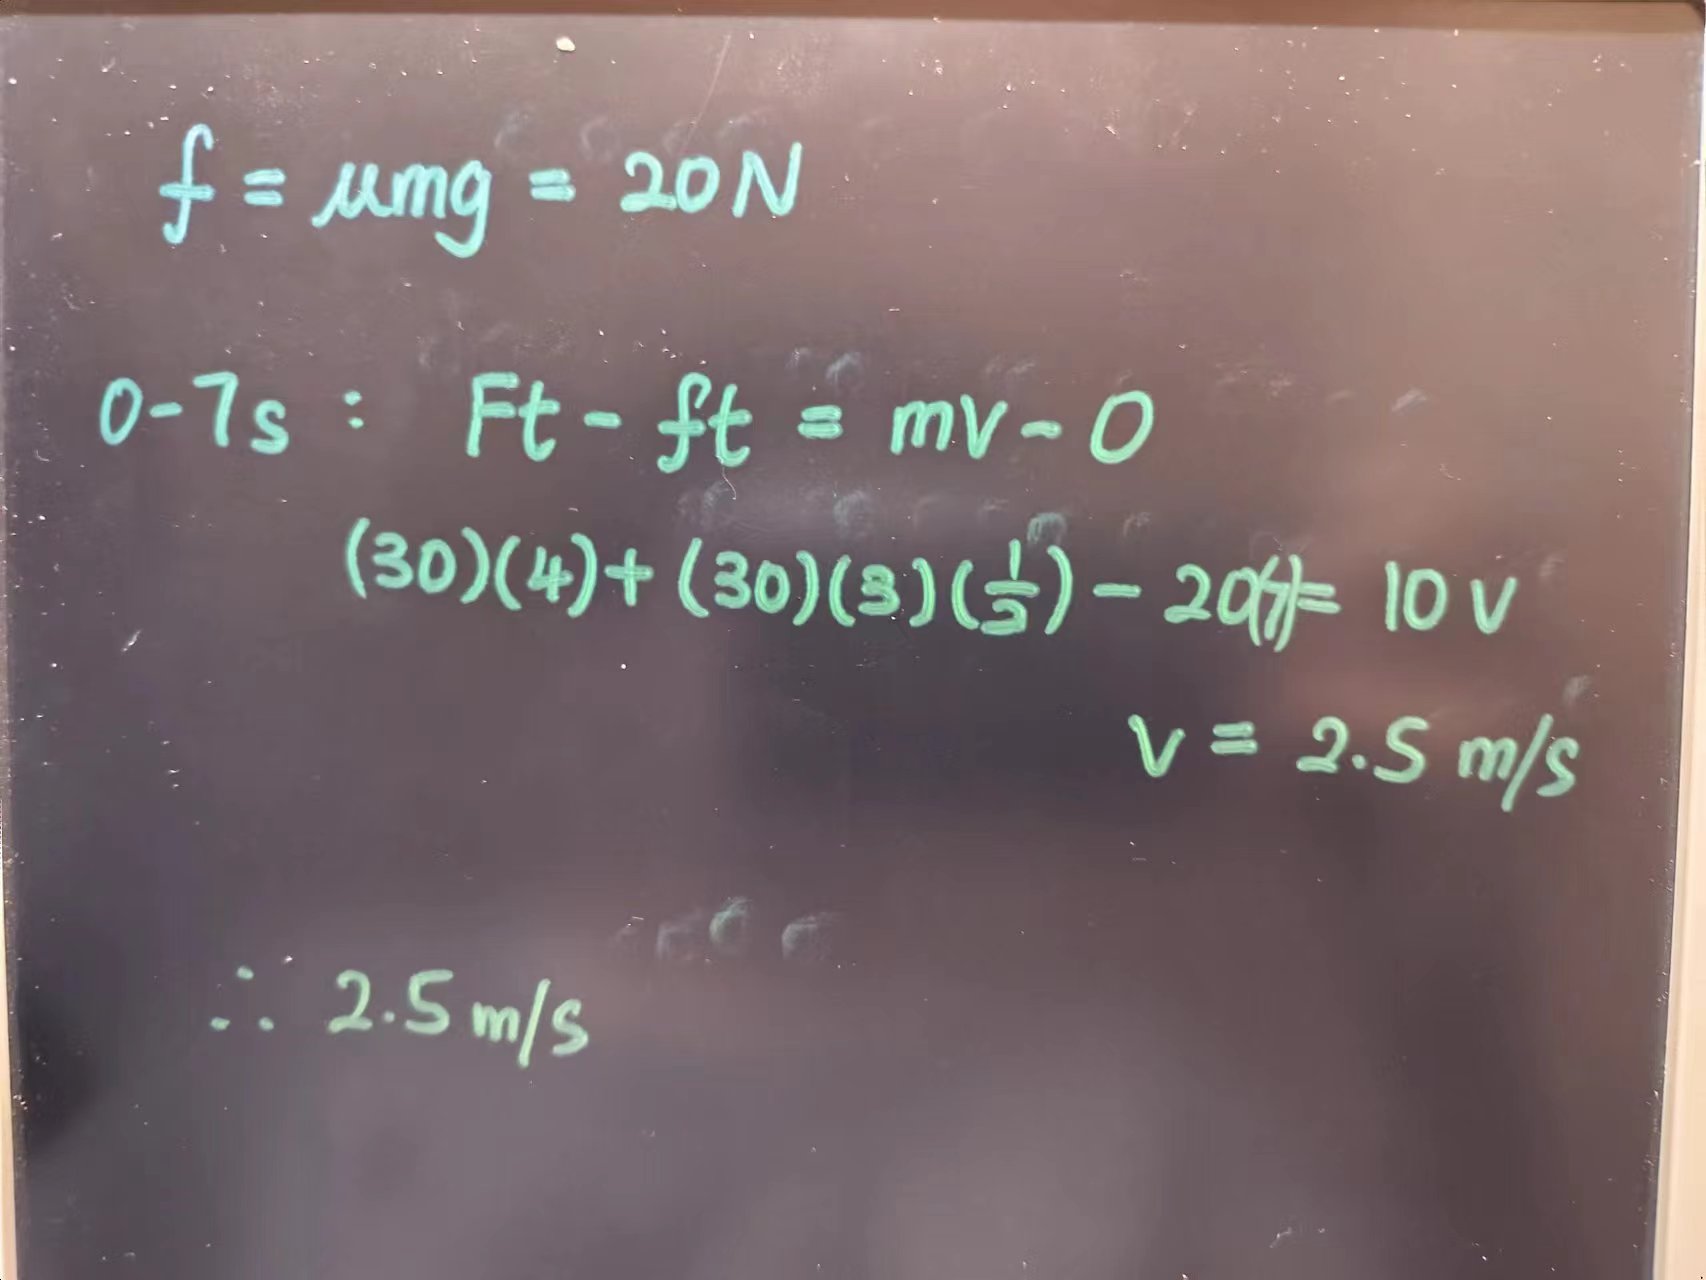 f = μmg = 20 N
0-7s : Ft - ft = mv - 0
(30)(4)+(30)(3)(1/2) - 20(7)= 10 v
v = 2.5 m/s
∴ 2.5 m/s